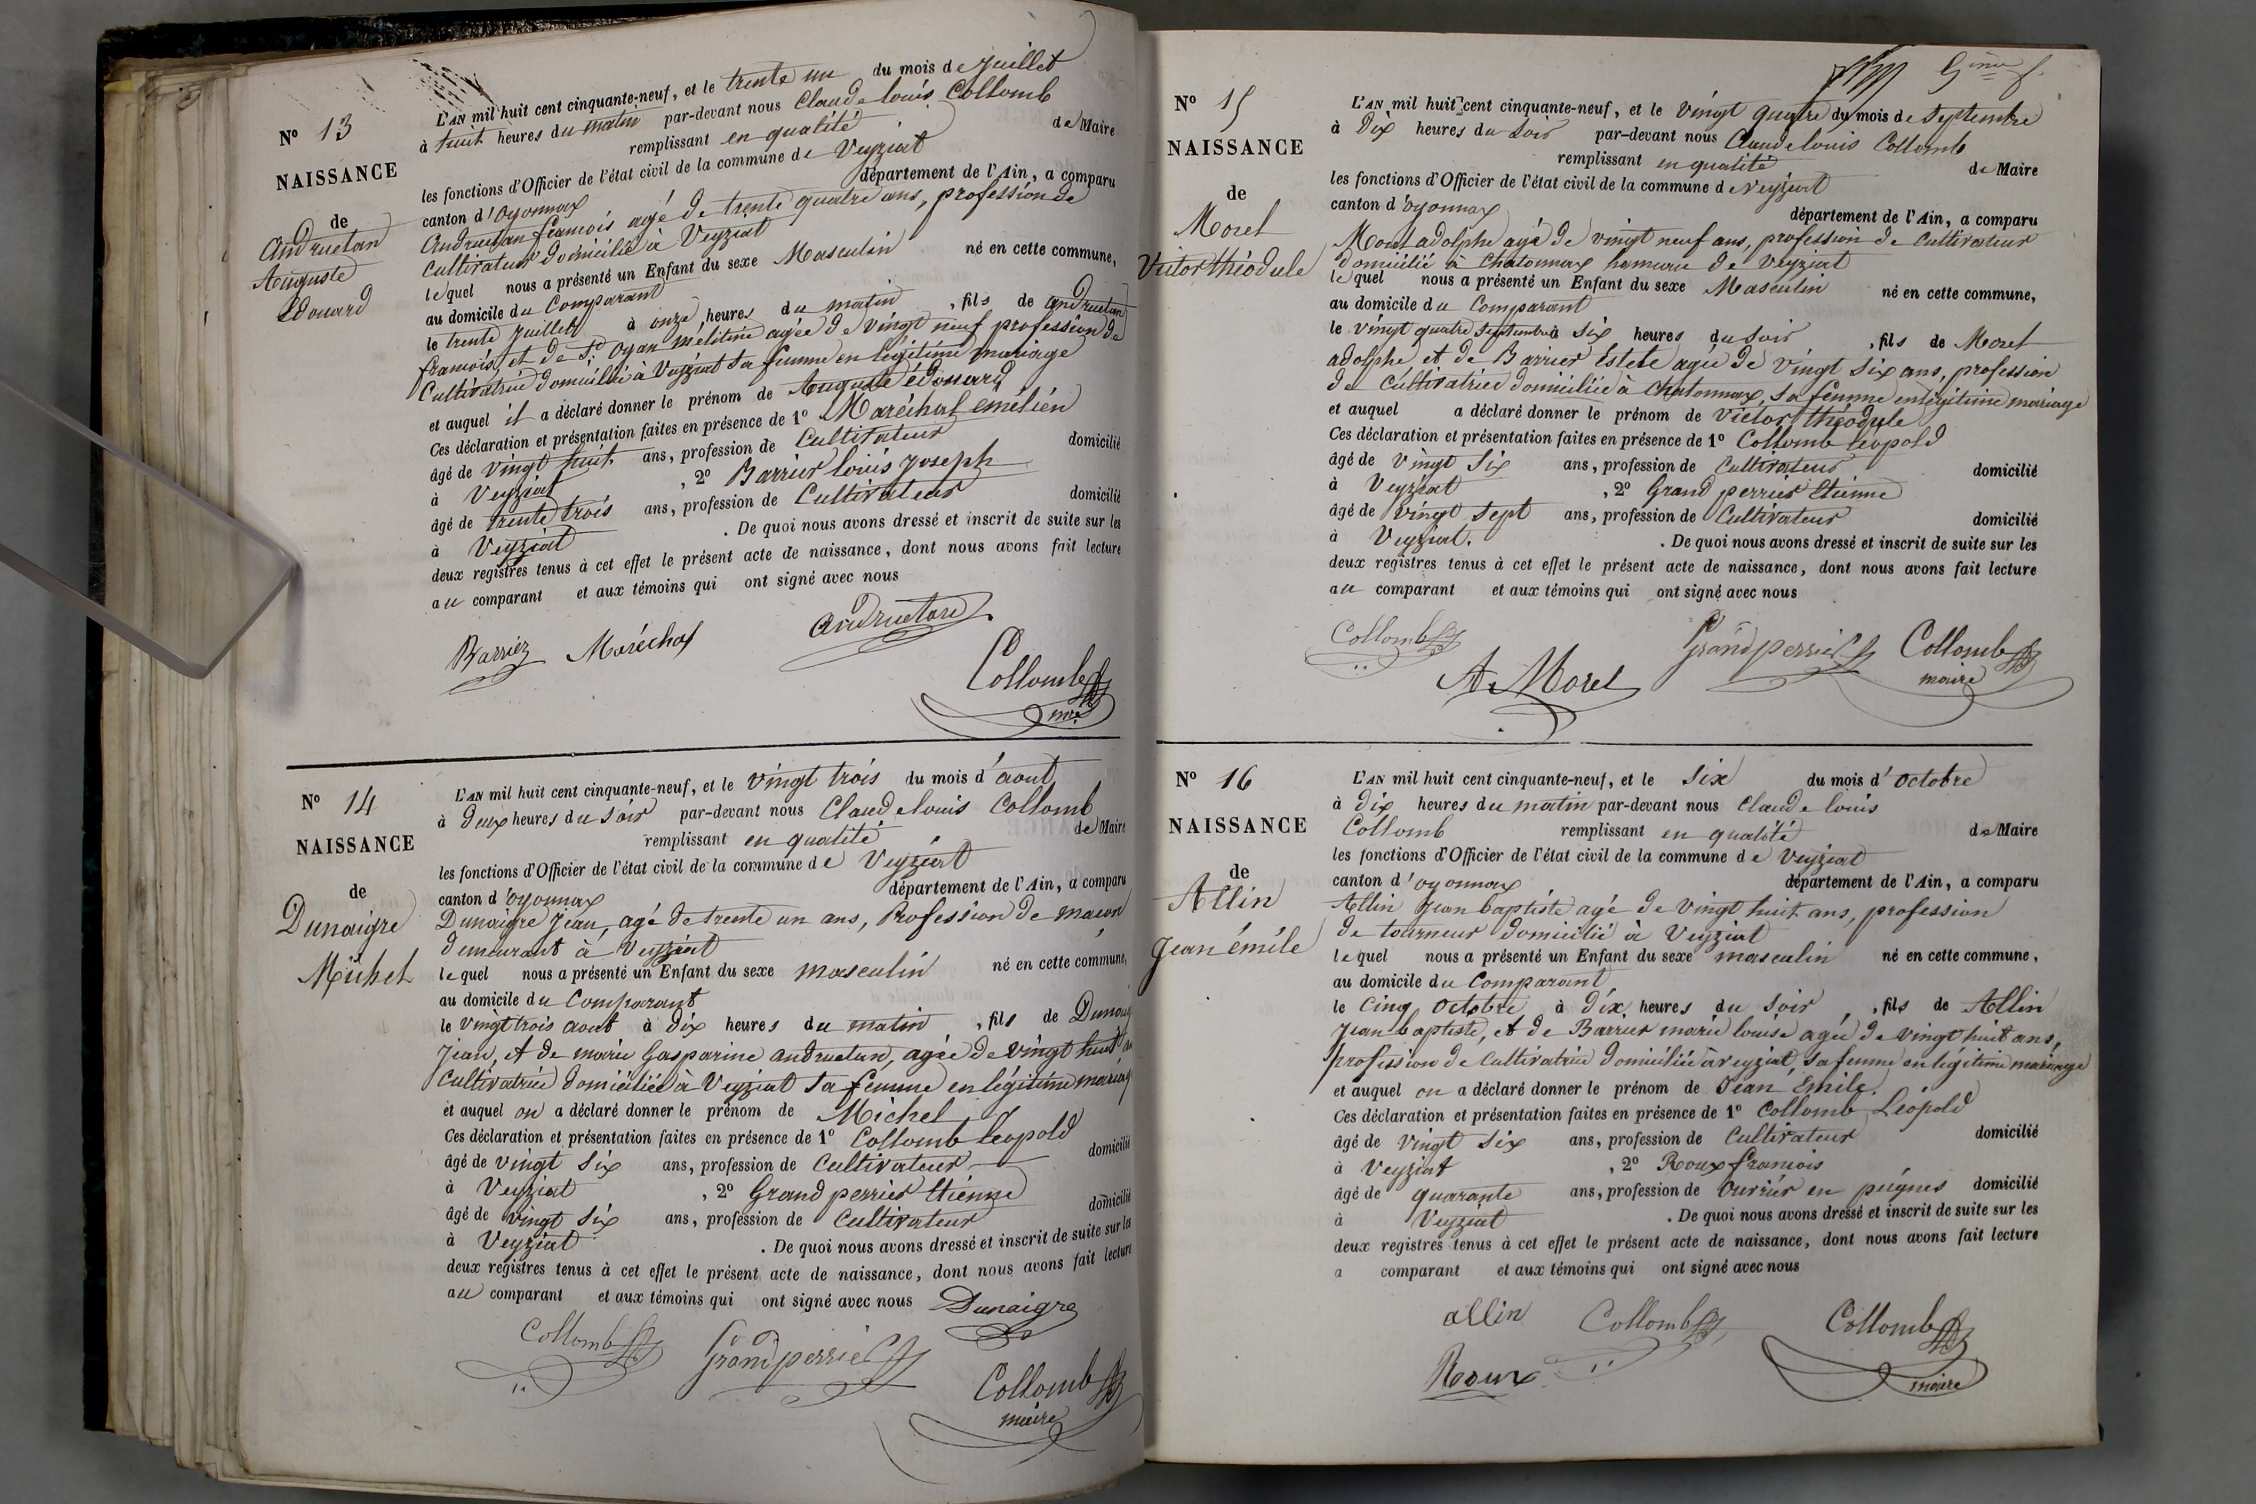 N° 13
NAISSANCE
de
andruetan
Auguste
Edouard
L'AN mil huit cent cinquante-neuf, et le trente un du mois de juillet
à huit heures du matin par-devant nous Claude louis Collomb
remplissant en qualité de Maire
les fonctions d'Officier de l'état civil de la commune de Veyziat
canton d'oyonnax département de l'Ain, a comparu
andruetan francois agé de trente quatre ans, profession de
cultivateur domicilié à Veyziat
lequel nous a présenté un Enfant du sexe Masculin né en cette commune,
au domicile du Comparant
le trente juillet à onze heures du matin, fils de andruetan
francois, et de St oyan mélitine agée de vingt neuf profession de
Cultivatrice domiciliée à Veyziat sa femme en légitime mariage
et auquel il a déclaré donner le prénom de Auguste édouard
Ces déclaration et présentation faites en présence de 1° Maréchal emélien
âgé de vingt huit ans, profession de Cultivateur domicilié
à Veyziat, 2° Barrier louis joseph
âgé de trente trois ans, profession de Cultivateur domicilié
à Veyziat. De quoi nous avons dressé et inscrit de suite sur les
deux registres tenus à cet effet le présent acte de naissance, dont nous avons fait lecture
au comparant et aux témoins qui ont signé avec nous
Barriez Maréchal andruetan
Collomb
mre
N° 14
NAISSANCE
de
Dunaigre
Michel
L'AN mil huit cent cinquante-neuf, et le vingt trois du mois d'aout
à deux heures du soir par-devant nous Claude louis Collomb
remplissant en qualité de Maire
les fonctions d'Officier de l'état civil de la commune de Veyziat
canton d'oyonnax département de l'Ain, a comparu
Dunaigre jean, agé de trente un ans, Profession de macon
demeurant à Veyziat
lequel nous a présenté un Enfant du sexe masculin né en cette commune,
au domicile du Comparant
le vingt trois aout à dix heures du matin, fils de
jean, et de marie Gasparine andruetan, agée de vingt huit
cultivatrice domiciliée à Veyziat sa femme en légitime
et auquel on a déclaré donner le prénom de Michel
Ces déclaration et présentation faites en présence de 1° Collomb Léopold
âgé de vingt six ans, profession de Cultivateur domicilié
à Veyziat, 2° Grand perrier Etienne
âgé de vingt six ans, profession de Cultivateur domicilié
à Veyziat. De quoi nous avons dressé et inscrit de suite sur les
deux registres tenus à cet effet le présent acte de naissance, dont nous avons fait lecture
au comparant et aux témoins qui ont signé avec nous Dunaigre
Collomb Grandperrier
Collomb
maire
N° 15
NAISSANCE
de
Morel
Victor théodule
L'AN mil huit cent cinquante-neuf, et le vingt quatre du mois de Septembre
à Dix heures du soir par-devant nous Claude louis Collomb
remplissant en qualité de Maire
les fonctions d'Officier de l'état civil de la commune de Veyziat
canton d'oyonnax département de l'Ain, a comparu
Morel adolphe agé de vingt neuf ans, profession de cultivateur
domicilié à Chatonnax hameau de Veyziat
lequel nous a présenté un Enfant du sexe Masculin né en cette commune,
au domicile du Comparant
le vingt quatre septembre à six heures du soir, fils de Morel
adolphe et de Barrier Estele agée de vingt six ans, profession
de cultivatrice domiciliée à Chatonnax, sa femme en légitime mariage
et auquel a déclaré donner le prénom de Victor théodule
Ces déclaration et présentation faites en présence de 1° Collomb Léopold
âgé de vingt six ans, profession de Cultivateur domicilié
à Veyziat, 2° Grand perrier Etienne
âgé de vingt sept ans, profession de Cultivateur domicilié
à Veyziat. De quoi nous avons dressé et inscrit de suite sur les
deux registres tenus à cet effet le présent acte de naissance, dont nous avons fait lecture
au comparant et aux témoins qui ont signé avec nous
Collomb Grandperrier Collomb
A. Morel maire
N° 16
NAISSANCE
de
Allin
Jean émile
L'AN mil huit cent cinquante-neuf, et le six du mois d'octobre
à dix heures du matin par-devant nous Claude louis
Collomb remplissant en qualité de Maire
les fonctions d'Officier de l'état civil de la commune de Veyziat
canton d'oyonnax département de l'Ain, a comparu
Allin Jean baptiste agé de vingt huit ans, profession
de tourneur domicilié à Veyziat
lequel nous a présenté un Enfant du sexe masculin né en cette commune,
au domicile du Comparant
le cinq octobre à dix heures du soir, fils de Allin
Jean baptiste, et de Barrier marie louise agée de vingt huit ans,
profession de cultivatrice domiciliée à veyziat, sa femme en légitime mariage
et auquel on a déclaré donner le prénom de Jean Emile.
Ces déclaration et présentation faites en présence de 1° Collomb Léopold
âgé de vingt six ans, profession de Cultivateur domicilié
à Veyziat, 2° Roux francois
âgé de quarante ans, profession de ouvrier en peignes domicilié
à Veyziat. De quoi nous avons dressé et inscrit de suite sur les
deux registres tenus à cet effet le présent acte de naissance, dont nous avons fait lecture
a comparant et aux témoins qui ont signé avec nous
allin Collomb Collomb
Roux maire